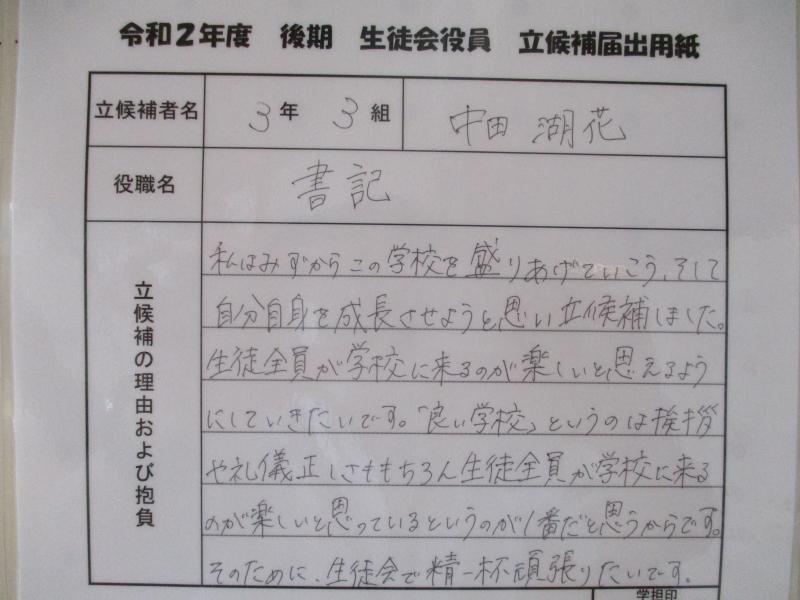 令和2年度 後期 生徒会役員 立候補届出用紙
立候補者名 3年 3組 中田 湖花
役職名 書記
立候補の理由および抱負
私はみずからこの学校を盛りあげていこう、そして
自分自身を成長させようと思い立候補しました。
生徒全員が学校に来るのが楽しいと思えるよう
にしていきたいです。「良い学校」というのは挨拶
や礼儀正しさももちろん生徒全員が学校に来る
のが楽しいと思っているというのが1番だと思うからです。
そのために、生徒会で精一杯頑張りたいです。
学担印